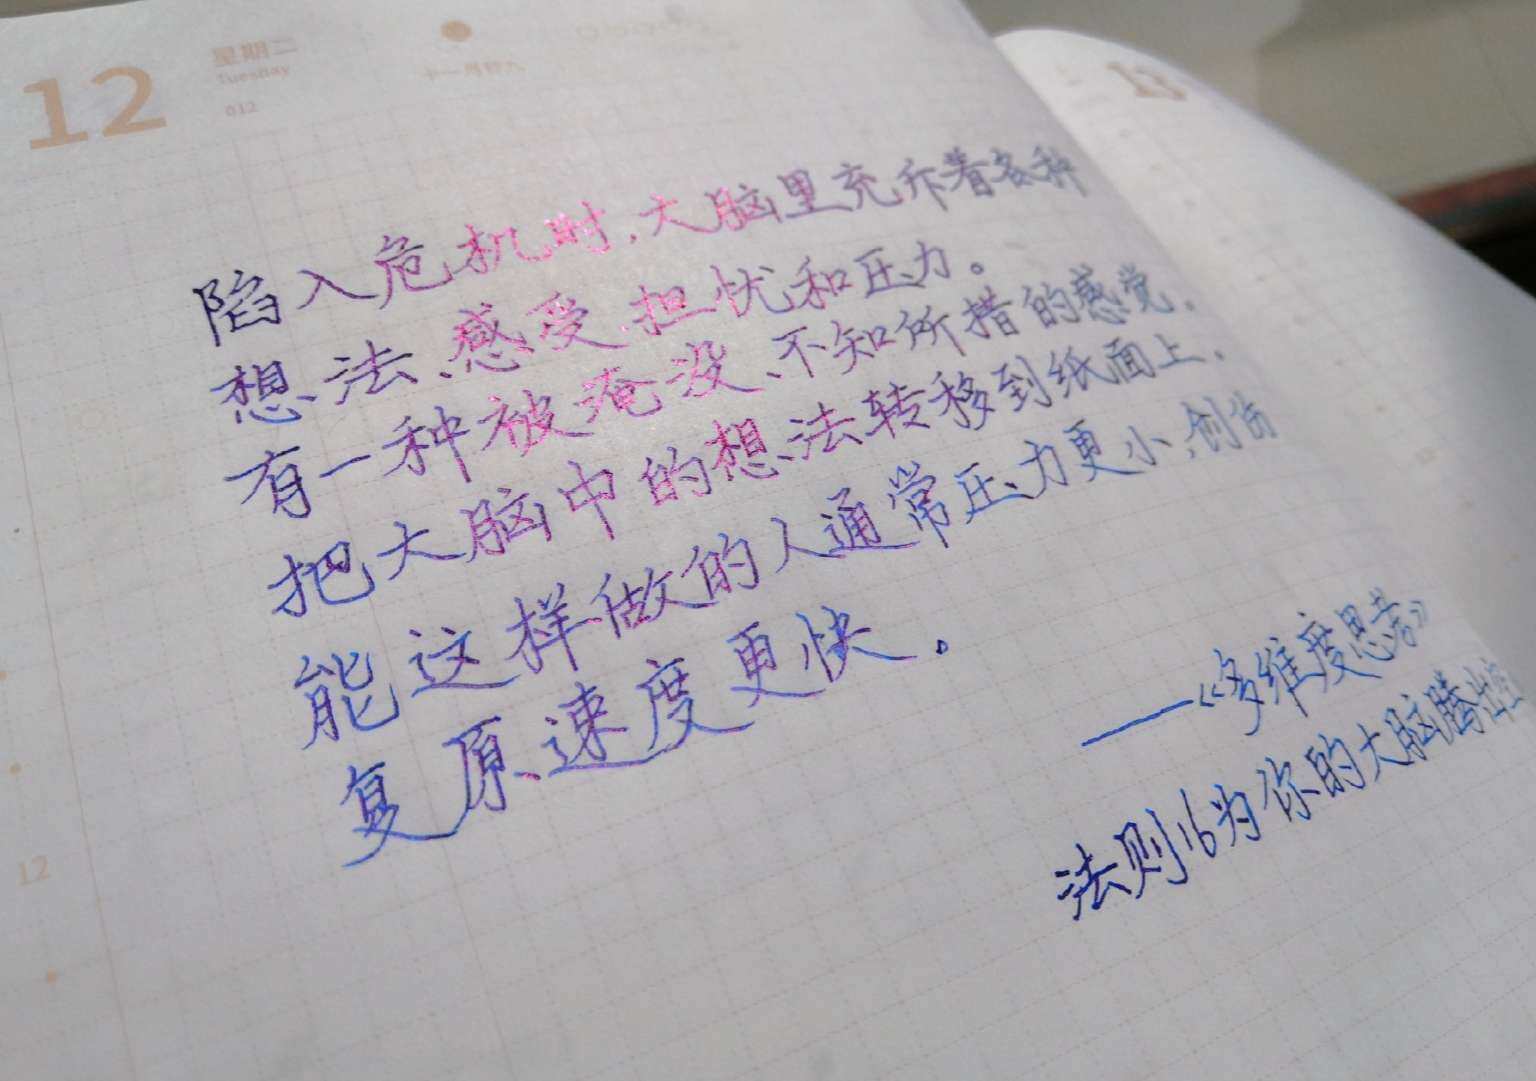 12
星期二
Tuesday
012
十一月廿九
13
陷入危机时,大脑里充斥着各种
想法、感受、担忧和压力。
有一种被淹没、不知所措的感觉,
把大脑中的想法转移到纸面上,
能这样做的人通常压力更小,创伤
复原速度更快。
——《多维度思考》
法则16为你的大脑腾出空
12